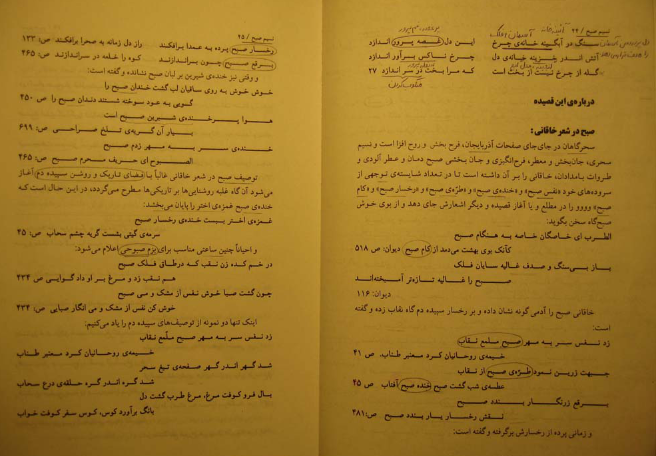 نسیم صبح / ۲۴
سنگ در آبگینه خانه‌ی چرخ این دل غصه پرور اندازد
آتش اندر خزینه خانه‌ی دل چرخ ناکس برآور اندازد
گله از چرخ نیست از بخت است که مرا بخت در سر اندازد ۲۷
درباره‌ی این قصیده
صبح در شعر خاقانی:
سحرگاهان در جای‌جای صفحات آذربایجان، فرح بخش و روح افزا است و نسیم
سحری، جان‌بخش و معطر، فرح‌انگیزی و جان بخشی صبح دمان و عطر آلودی و
طروات بامدادان، خاقانی را بر آن داشته است تا در تعداد شایسته‌ی توجهی از
سروده‌های خود «نفس صبح» و «خنده‌ی صبح» و «طرّه‌ی صبح» و «رخسار صبح» و «کام
صبح» وووو را در مطلع و یا آغاز قصیده و دیگر اشعارش جای دهد و از بوی خوش
صبح‌گاه سخن بگوید:
الطرب ای خاصگان خاصه به هنگام صبح
کآنک بوی بهشت می‌دمد از کام صبح دیوان: ص ۵۱۸
باز بی‌سنگ و صدف غالیه سایان فلک
صبح را غالیه تازه‌تر آمیخته‌اند
دیوان: ۱۱۶
خاقانی صبح را آدمی گونه نشان داده و بر رخسار سپیده دم گاه نقاب زده و گفته
است:
زد نفس سر به مهر صبح ملمع نقاب
خیمه‌ی روحانیان کرد معنبر طناب. ص ۴۱
جبهت زرین نمود طرّه‌ی صبح از نقاب
عطسه‌ی شب گشت صبح خنده صبح آفتاب ص ۴۵
برقع زرنگار بندد صبح
نقش رخسار یار بندد صبح ص: ۴۸۱
و زمانی پرده از رخسارش برگرفته و گفته است:
نسیم صبح / ۲۵
رخسار صبح پرده به عمدا برافکند راز دل زمانه به صحرا برافکند ص: ۱۳۳
برقع صبح چون براندازند کوه را خلعه در سراندازند. ص ۴۶۵
و وقتی نیز خنده‌ی شیرین بر لبان صبح نشانده و گفته است:
خوش خوش به روی ساقیان لب گشت خندان صبح را
گویی به عود سوخته شستند دندان صبح را ص ۴۵۰
هوا پرخنده‌ی شیرین صبح است
بسیار آن گریه‌ی تلخ صراحی ص: ۶۹۹
خنده‌ی سر به مهر زدم صبح
الصبوح ای حریف محرم صبح ص: ۴۶۵
توصیف صبح در شعر خاقانی غالباً با فضای تاریک و روشن سپیده دم آغاز
می‌شود آن گاه غلبه روشنایی‌ها بر تاریکی‌ها مطرح می‌گردد، در این حال است که
خنده‌ی صبح غمزه‌ی اختر را پایان می‌بخشد:
غمزه‌ی اختر ببست خنده‌ی رخسار صبح
سرمه‌ی گیتی بشست گریه چشم سحاب ص: ۴۵
و احیاناً چنین ساعتی مناسب برای بزم صبوحی اعلام می‌شود:
در خم کده زن نقب که درطاق فلک صبح
هم نقب زد و مرغ بر او داد گوایی ص ۴۳۴
چون گشت صبا خوش نفس از مشک و می صبح
خوش کن نفس از مشک و می انگار صبایی ص: ۴۳۴
اینک تنها دو نمونه از توصیف‌های سپیده دم را یاد می‌کنیم:
زد نفس سر به مهر صبح ملمع نقاب
خیمه‌ی روحانیان کرد معنبر طناب
شد گهر اندر گهر صفحه‌ی تیغ سحر
شد گره اندر گره حلقه‌ی درع سحاب
بال فرو کوفت مرغ، مرغ طرب گشت دل
بانگ برآورد کوس، کوس سفر کوفت خواب